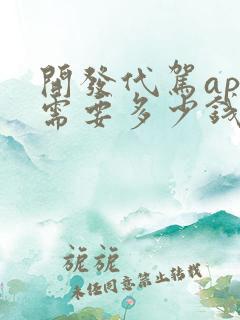 開發代駕ap
需要多少錢
旎旎
未經同意禁止轉載